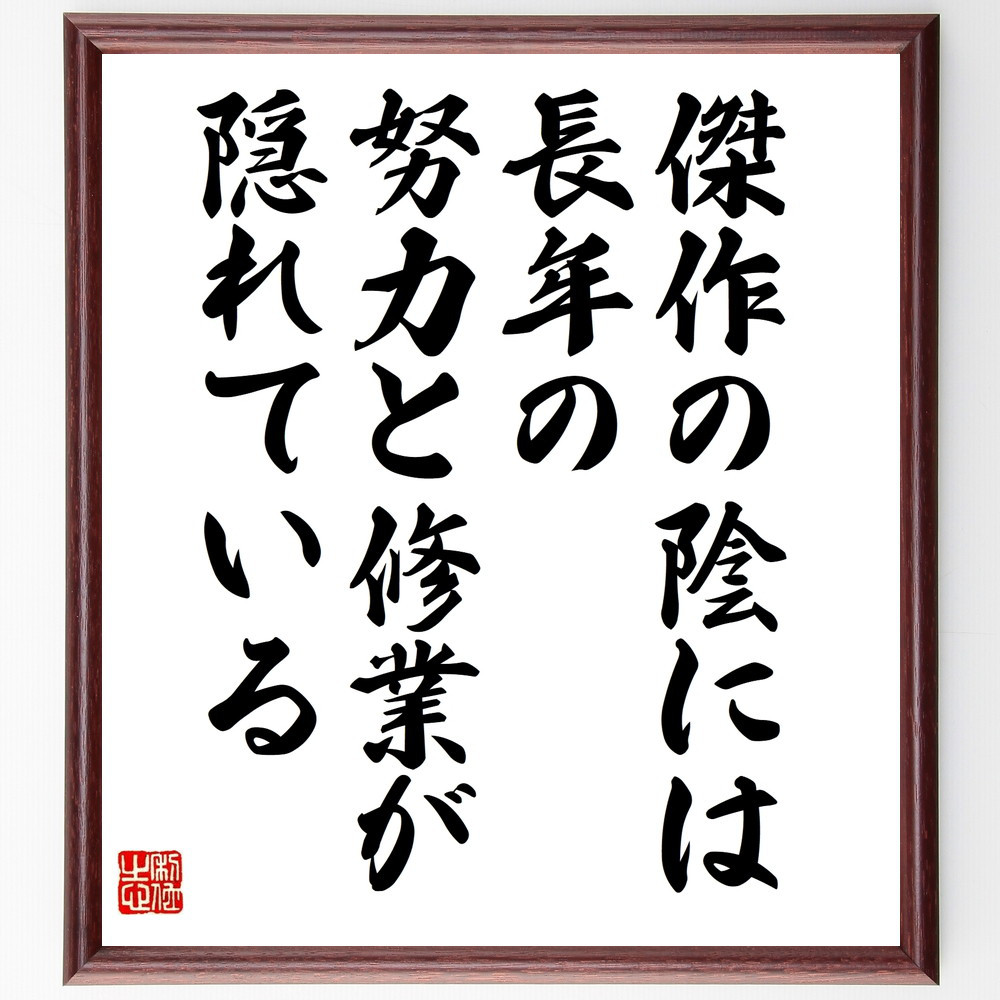 傑作の陰には
長年の
努力と修業が
隠れている